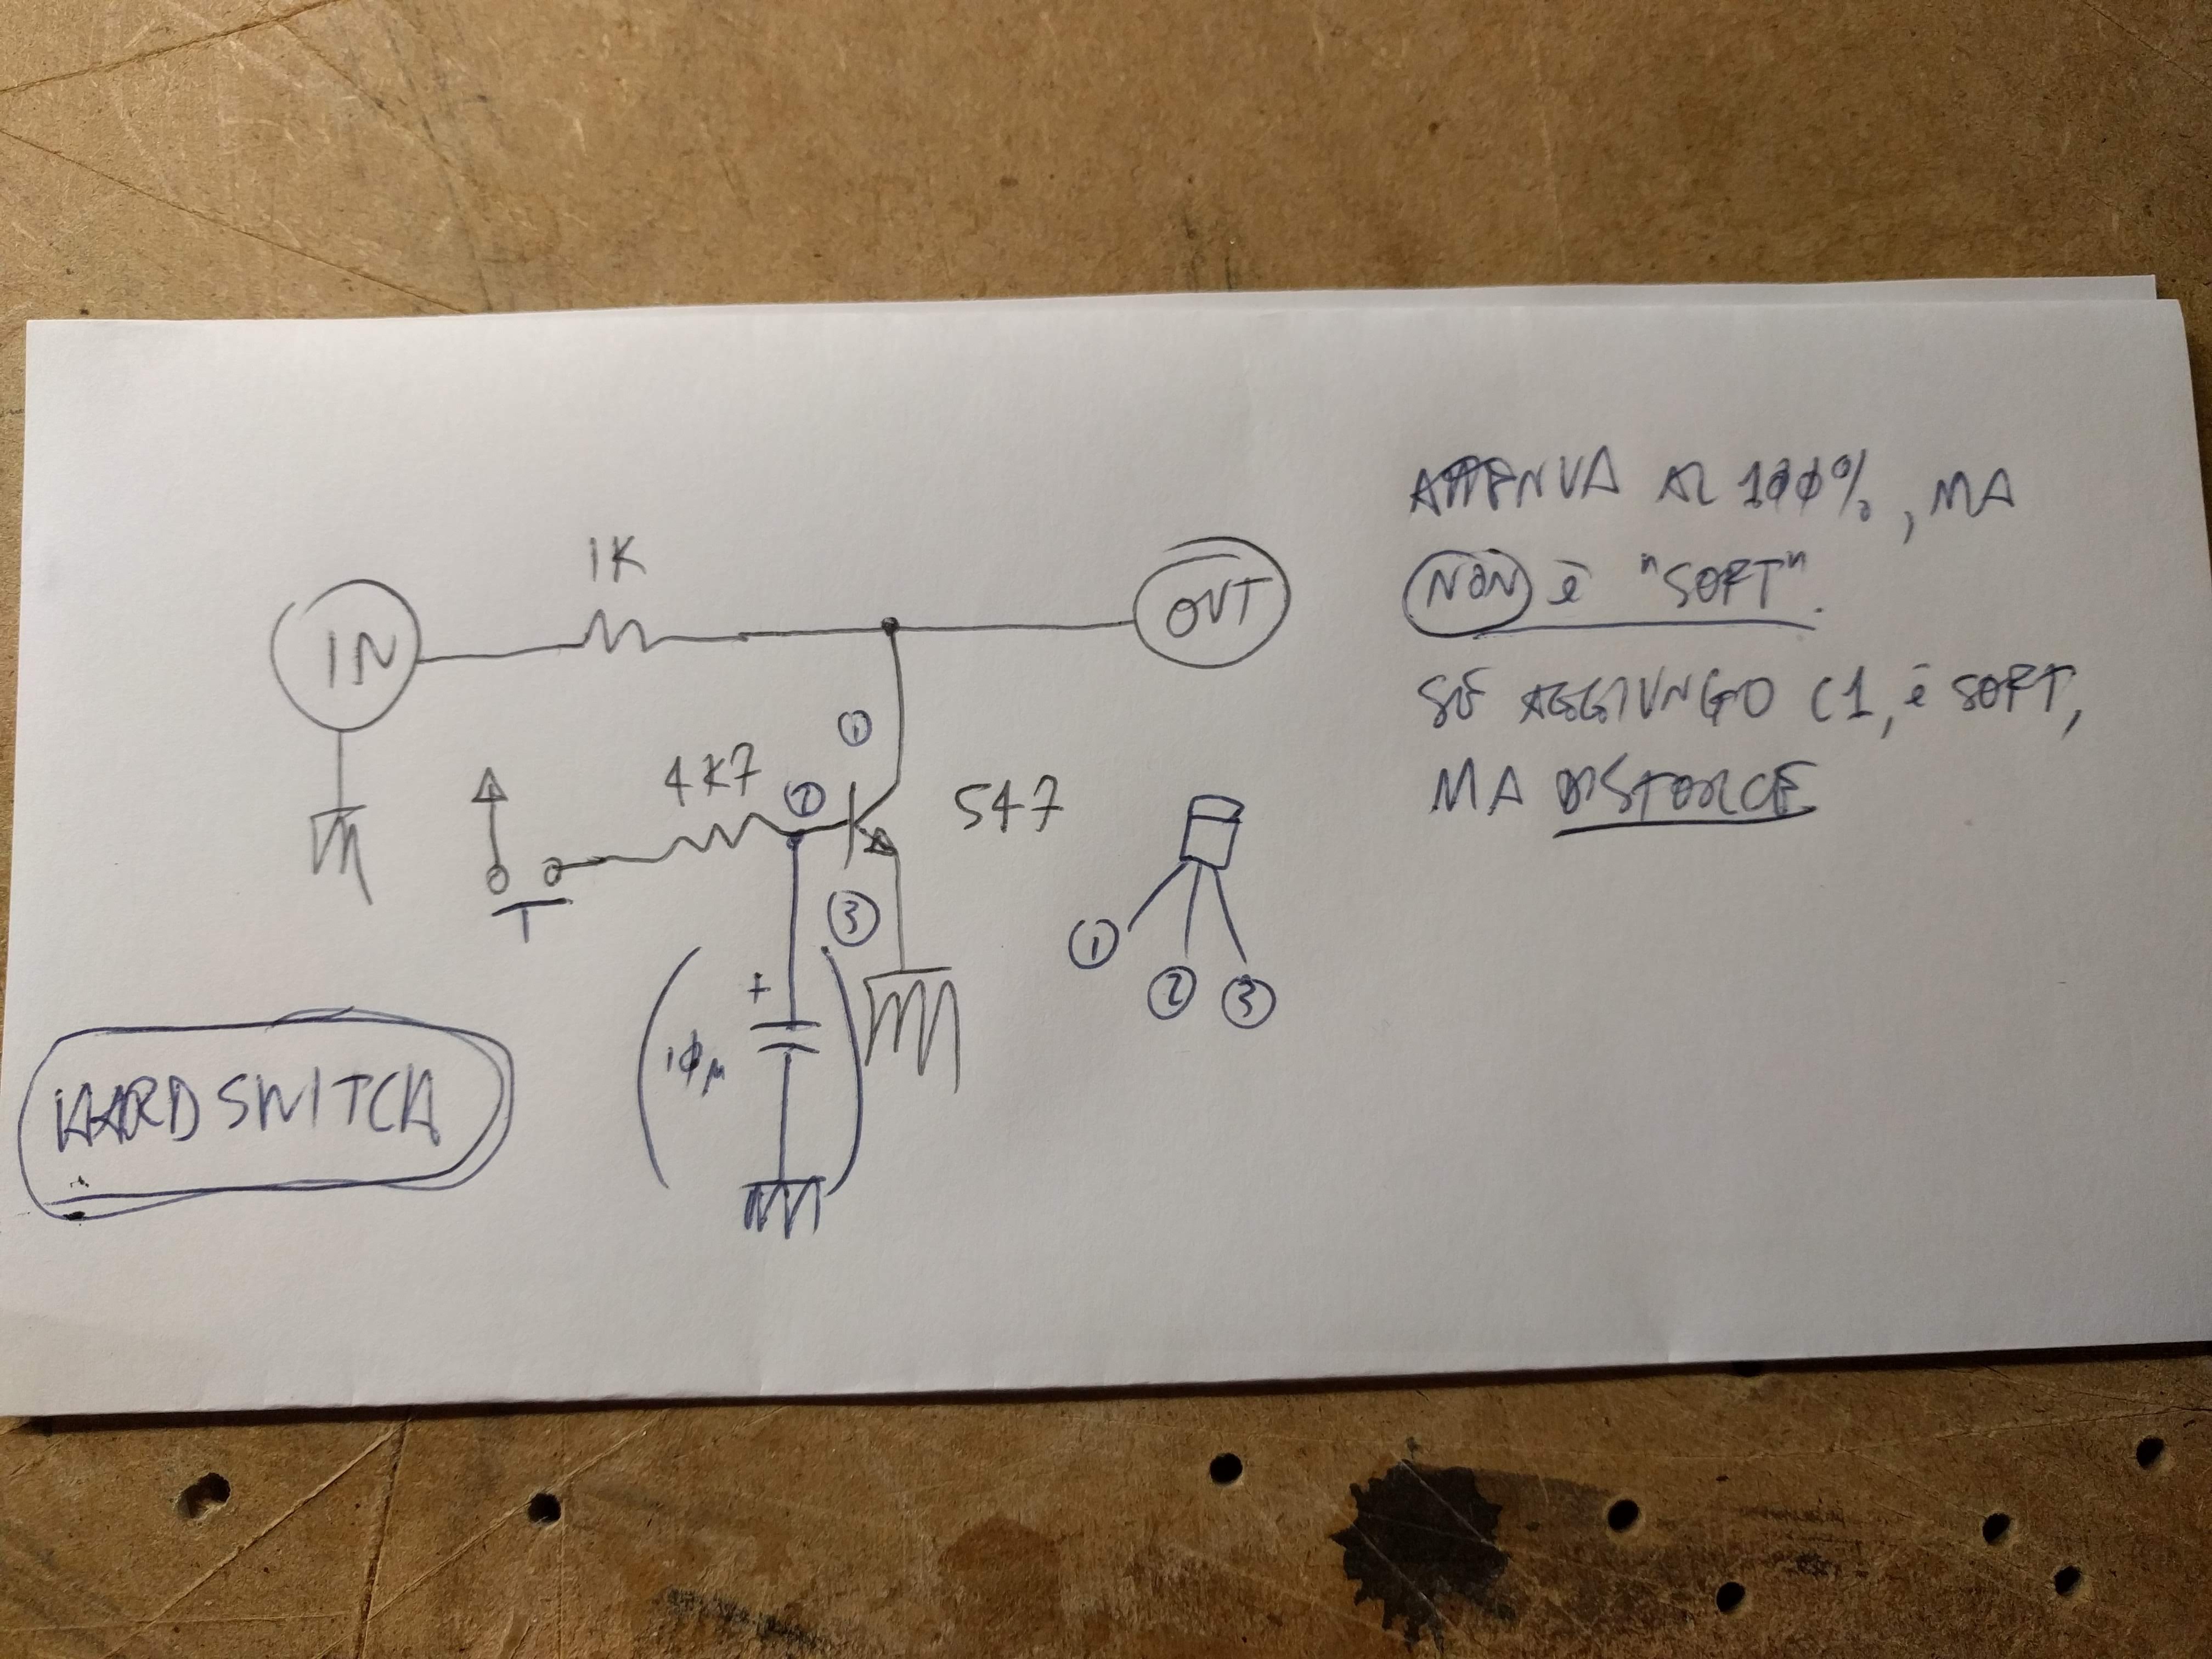 1K
IN
OUT
①
4K7
②
547
③
+
10µ
①
②
③
HARD SWITCH
ATTENUA AL 100%, MA
NON è "SOFT".
SE AGGIUNGO C1, è SOFT,
MA DISTORCE